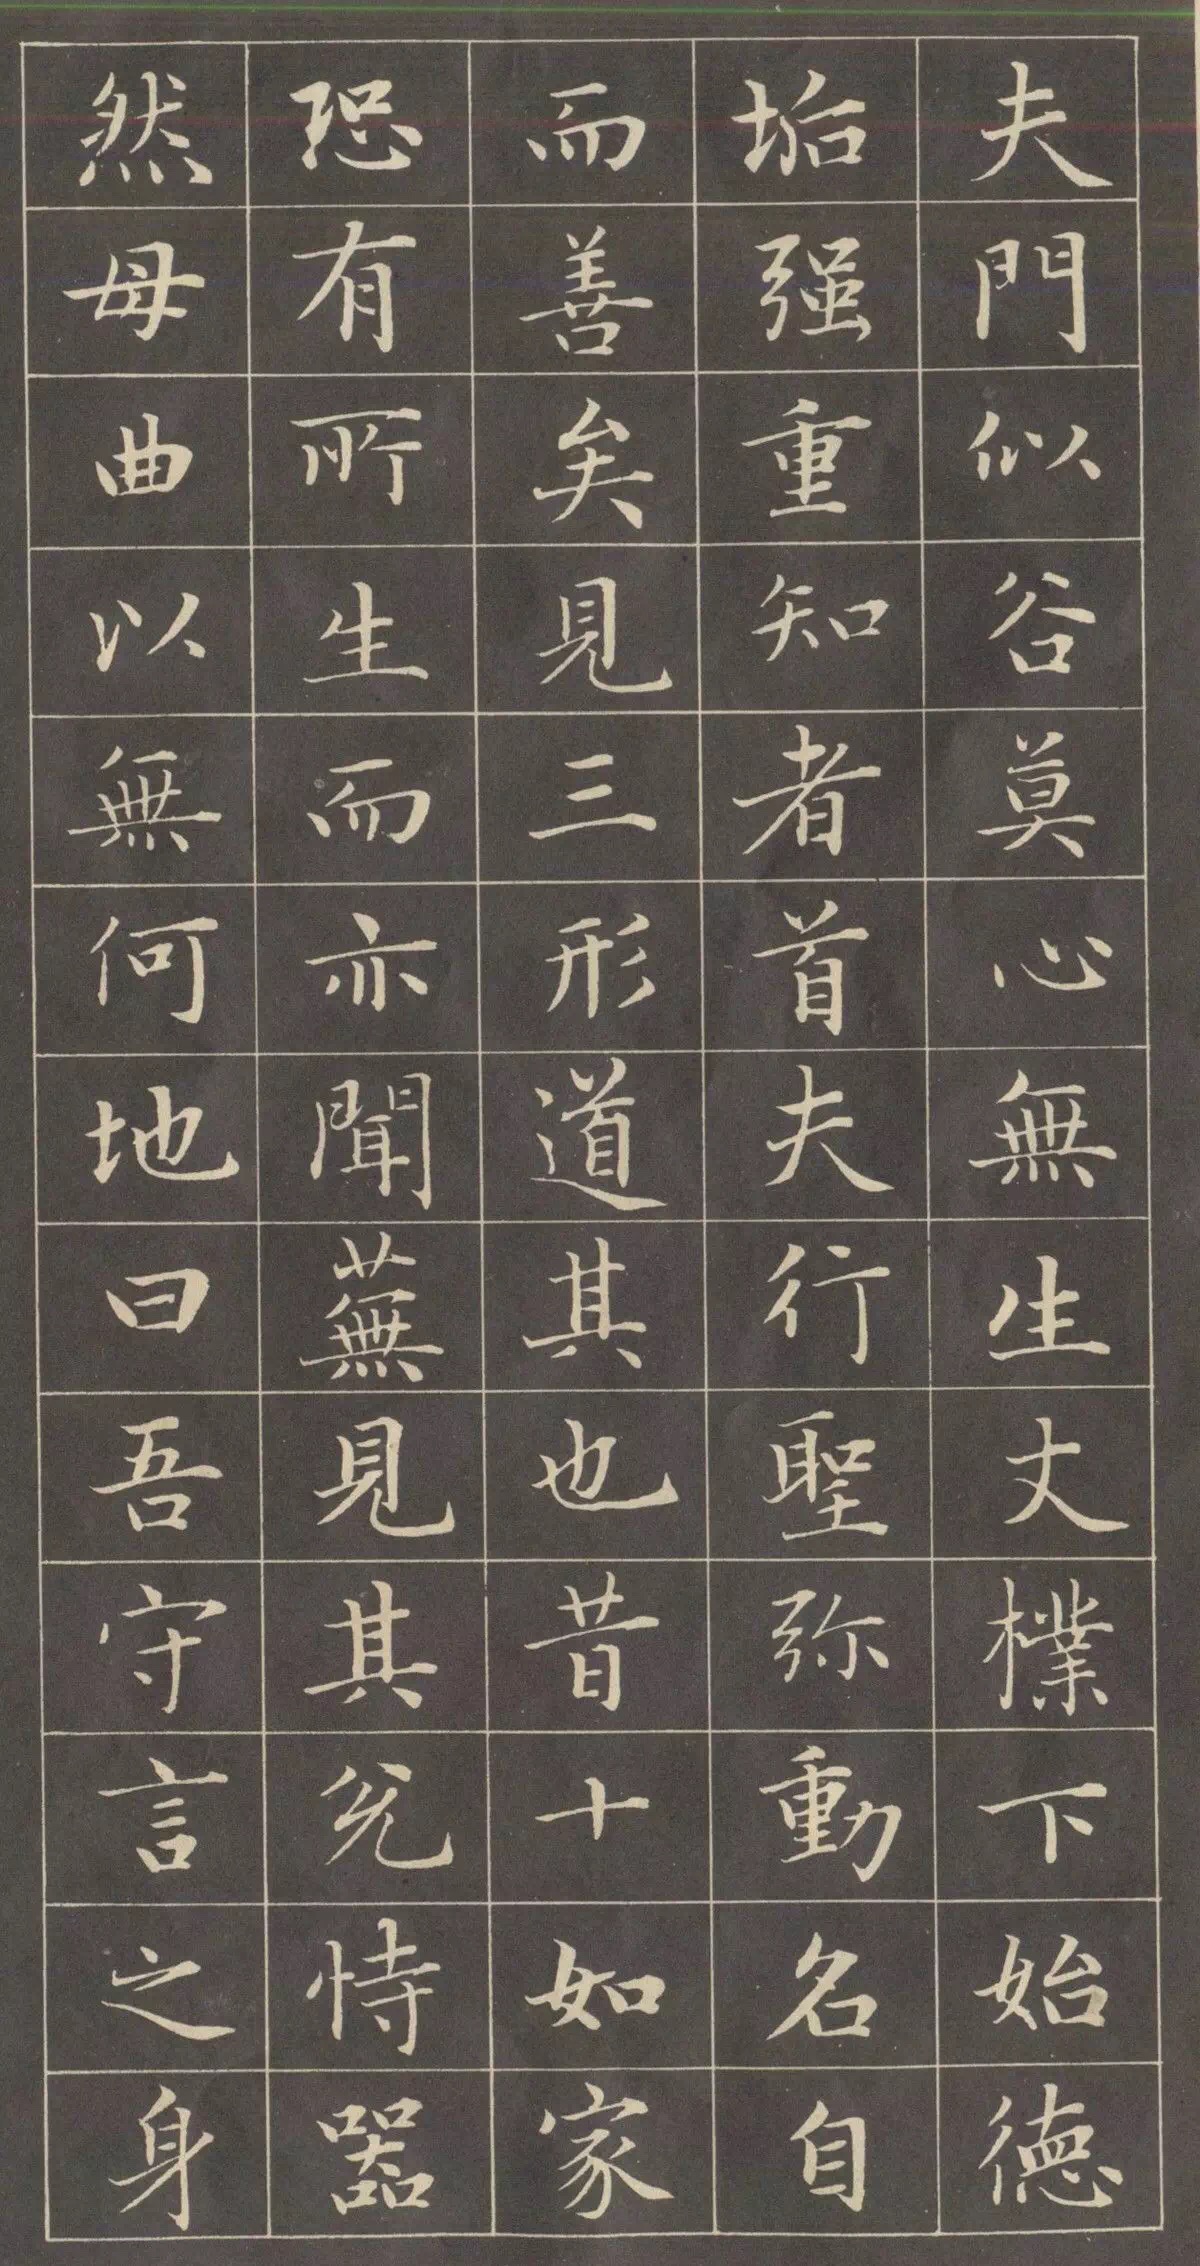 夫門似谷莫心無生丈檏下始德
垢强重知者首夫行聖弥動名自
而善矣見三形道其也昔十如家
恐有所生而亦聞蕪見其兊恃器
然毋曲以無何地曰吾守言之身